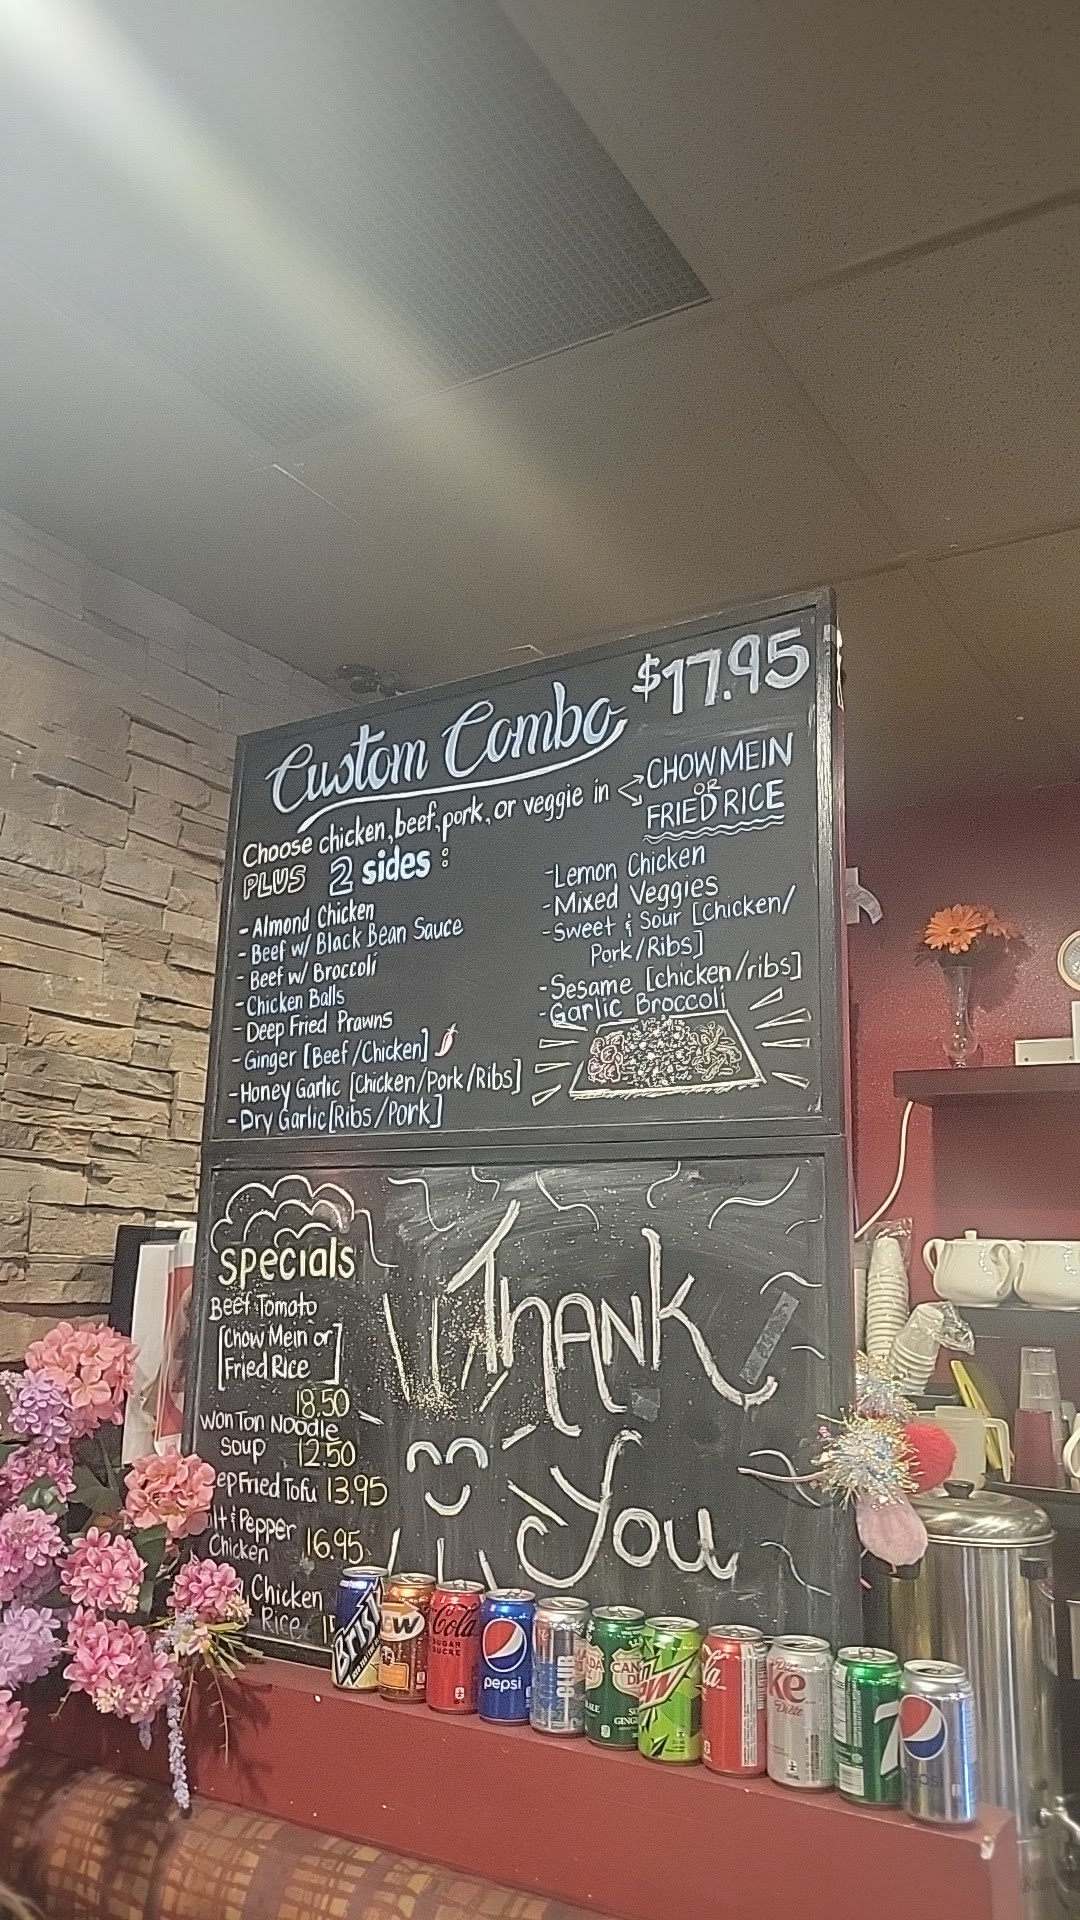 Custom Combo $17.95
Choose chicken, beef, pork, or veggie in
CHOW MEIN
OR
FRIED RICE
PLUS 2 sides:
- Almond Chicken
- Beef w/ Black Bean Sauce
- Beef w/ Broccoli
- Chicken Balls
- Deep Fried Prawns
- Ginger [Beef/Chicken]
- Honey Garlic [Chicken/Pork/Ribs]
- Dry Garlic [Ribs/Pork]
- Lemon Chicken
- Mixed Veggies
- Sweet & Sour [Chicken/
Pork/Ribs]
- Sesame [chicken/ribs]
- Garlic Broccoli
Specials
Beef Tomato
[Chow Mein or]
[Fried Rice]
18.50
Won Ton Noodle
Soup 12.50
eep Fried Tofu 13.95
lt & Pepper
Chicken 16.95
Chicken
Rice
Thank
You
Brisk
W
Cola
SUGAR
SUCRE
pepsi
CLUB
CANADA
GINGER
Diet
ke
Diète
7
pepsi